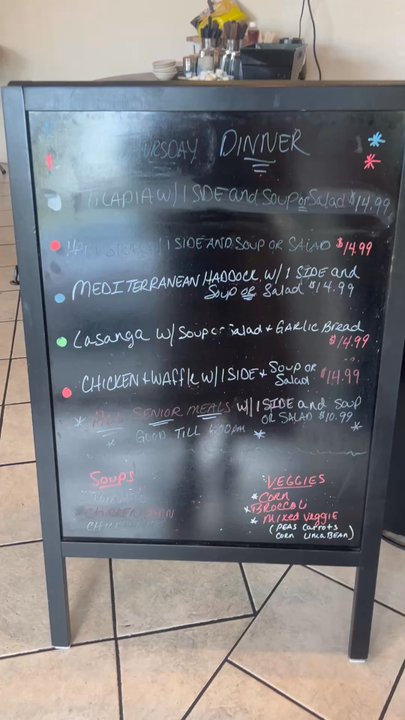 THURSDAY DINNER
TILAPIA W/ 1 SIDE and SOUP or Salad $14.99
W/ 1 SIDE AND SOUP OR SALAD $14.99
MEDITERRANEAN HADDOCK W/ 1 SIDE and
Soup or Salad $14.99
Lasanga W/ Soup or Salad + GARLIC BREAD
$14.99
CHICKEN + WAFFLE W/ 1 SIDE + SOUP OR
Salad $14.99
* SENIOR MEALS W/ 1 SIDE and SOUP
OR SALAD $10.99
* GOOD TILL 6:00pm *
SOUPS
CHICKEN
VEGGIES
* CORN
* BROCCOLI
* MIXED VEGGIE
(PEAS CARROTS
CORN LIMA BEAN)